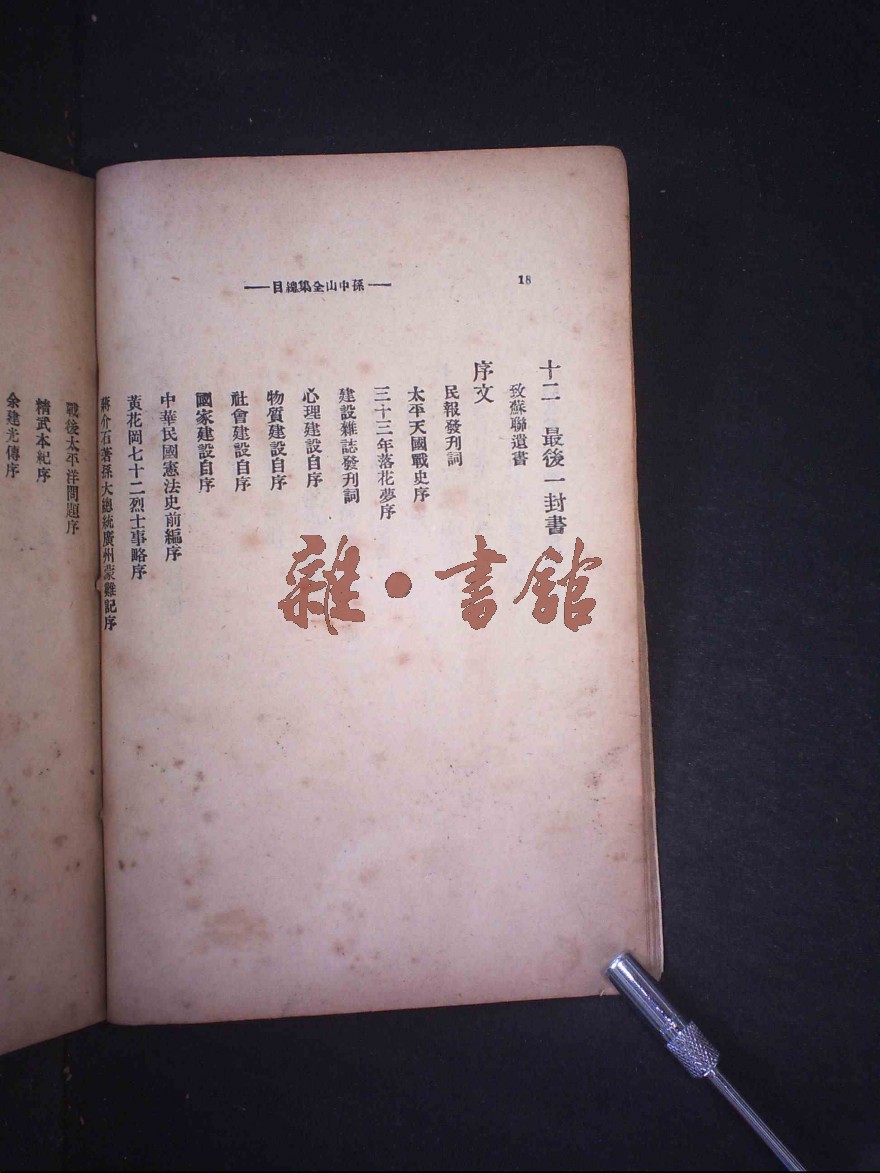 18
——孫中山全集總目——
十二 最後一封書
致蘇聯遺書
序文
民報發刊詞
太平天國戰史序
三十三年落花夢序
建設雜誌發刊詞
心理建設自序
物質建設自序
社會建設自序
國家建設自序
中華民國憲法史前編序
黃花岡七十二烈士事略序
蔣介石著孫大總統廣州蒙難記序
戰後太平洋問題序
精武本紀序
余建光傳序
雜·書館